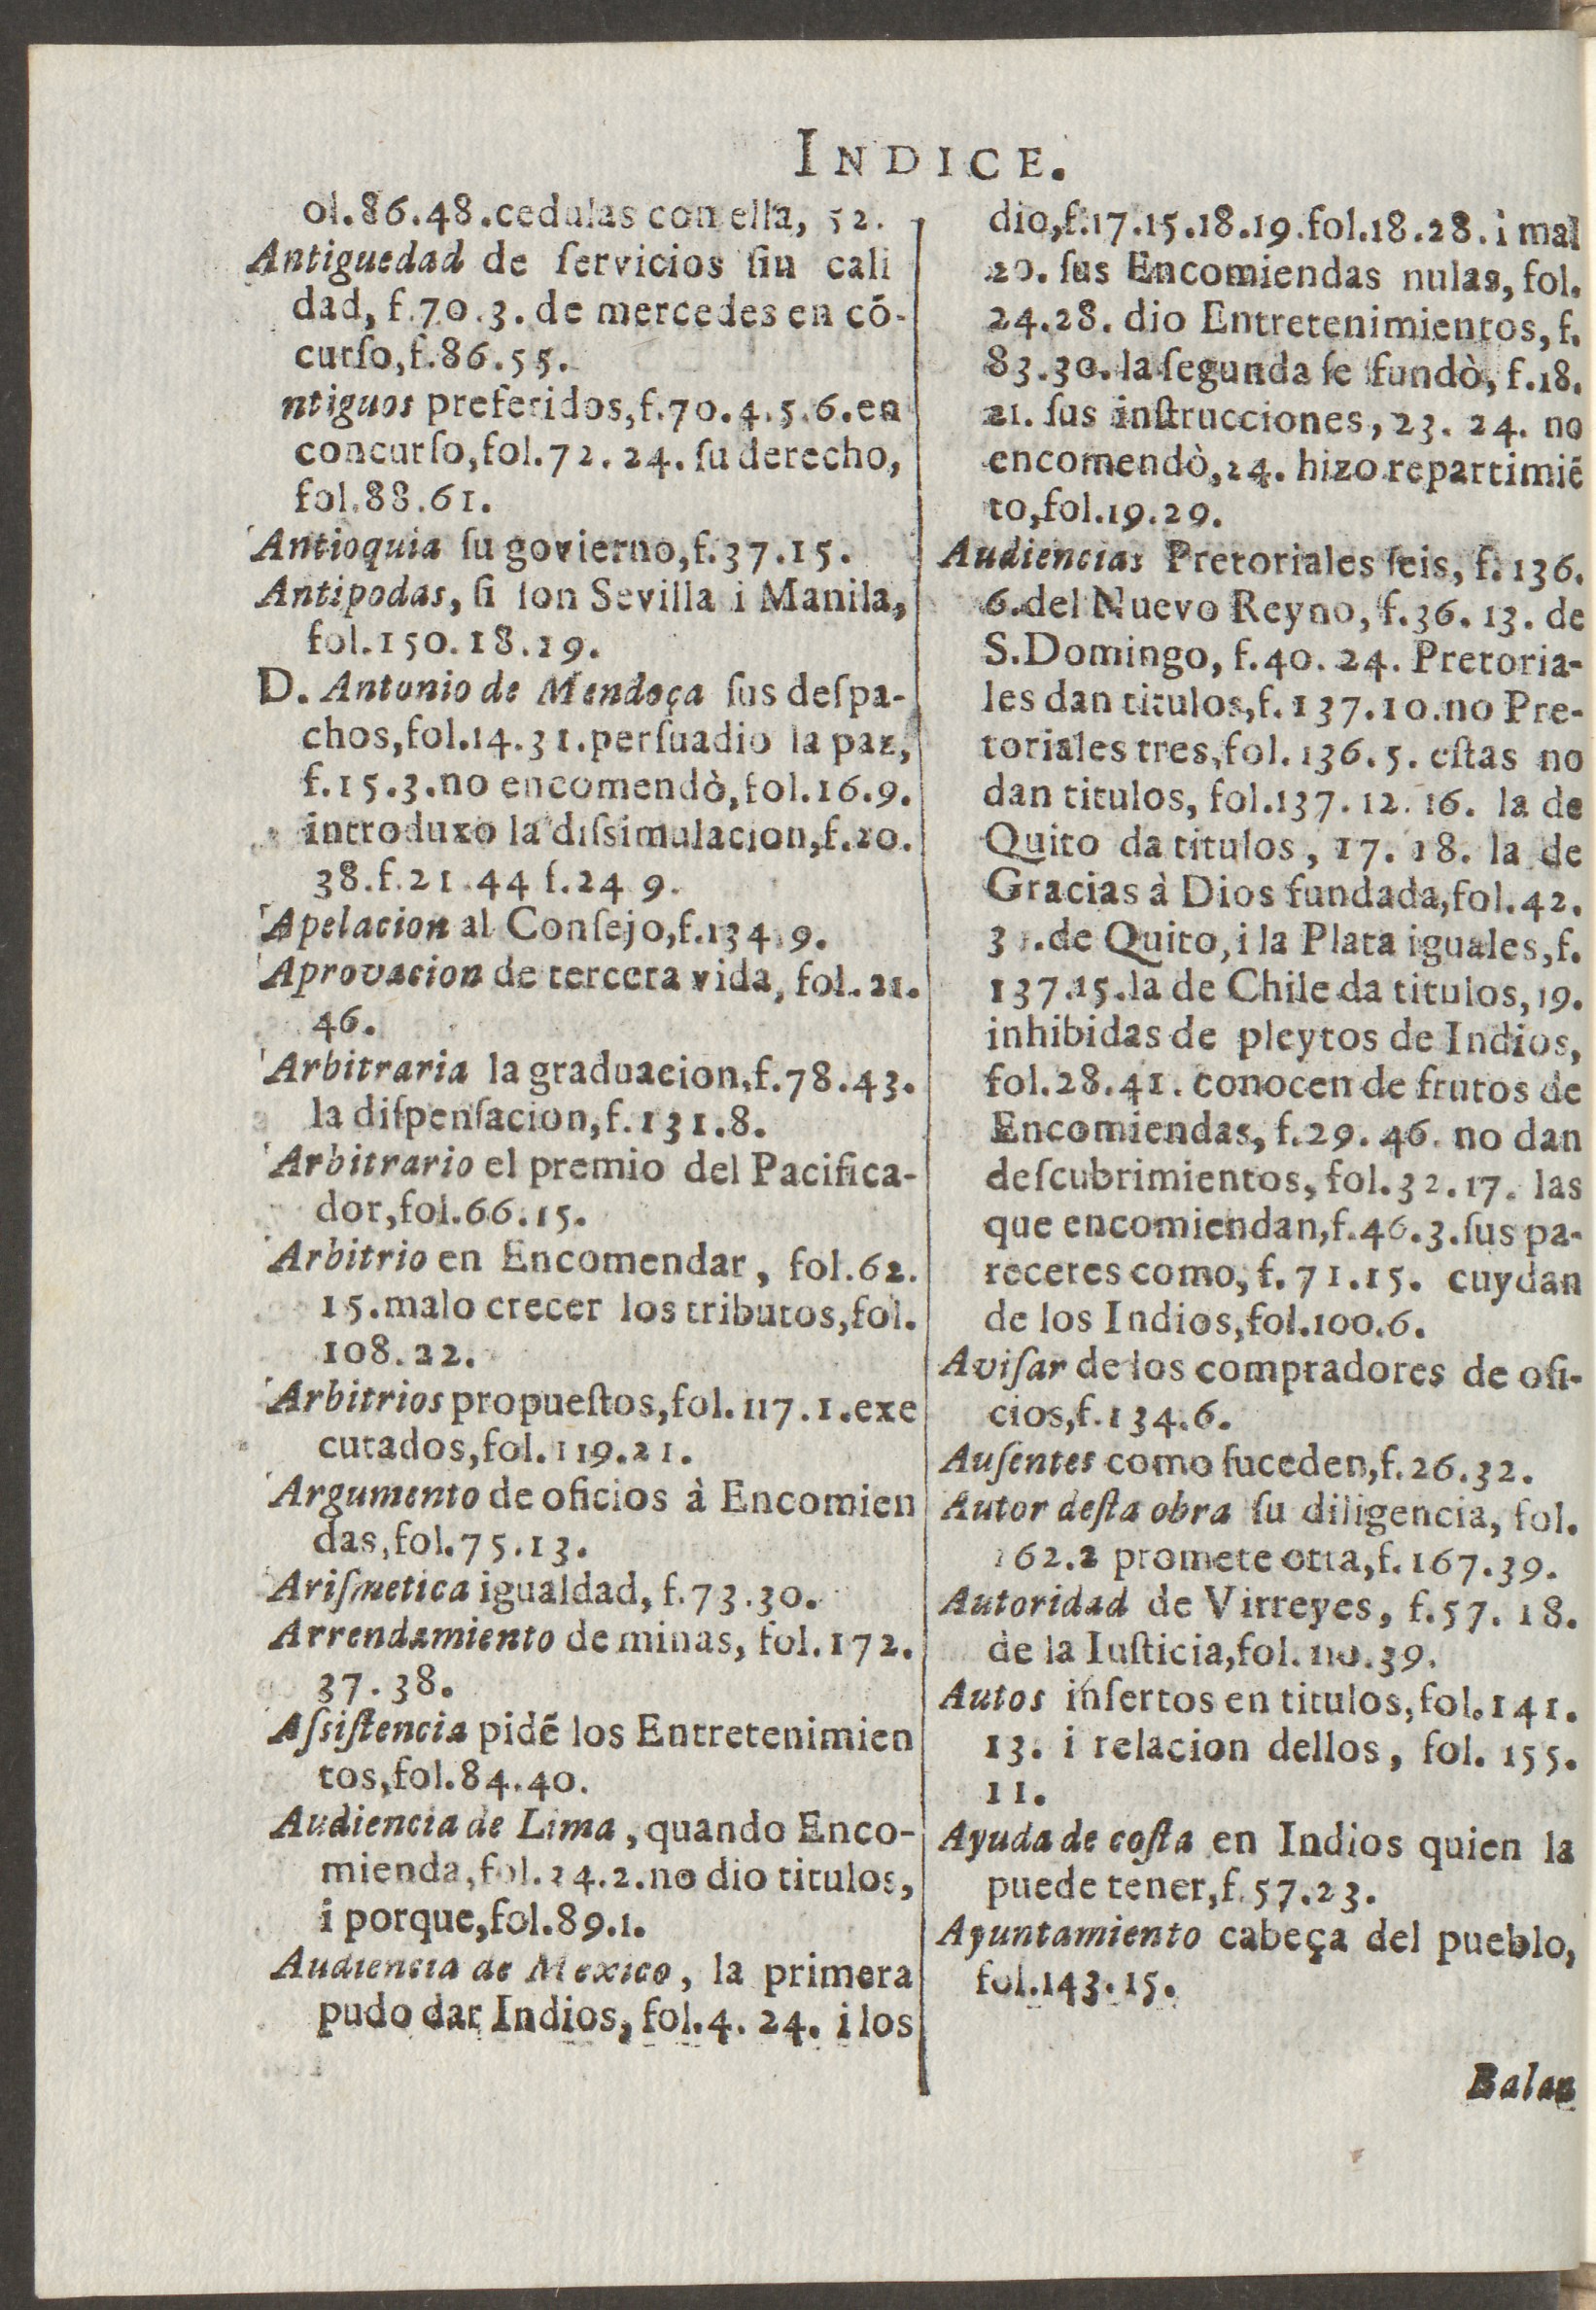 INDICE.
ol.86.48.cedulas con ella, 52.
Antiguedad de ſervicios ſin cali
dad, f.70.3. de mercedes en cõ-
curſo,f.86.55.
ntiguos preferidos,f.70.4.5.6.en
concurſo,fol.72.24. ſu derecho,
fol.88.61.
Antioquia ſu govierno,f.37.15.
Antipodas, ſi ſon Sevilla i Manila,
fol.150.18.29.
D. Antonio de Mendoça ſus deſpa-
chos,fol.14.31.perſuadio la paz,
f.15.3.no encomendò,fol.16.9.
introduxo la diſsimulacion,f.20.
38.f.21.44 f.24 9.
Apelacion al Conſejo,f.134.9.
Aprovacion de tercera vida, fol.21.
46.
Arbitraria la graduacion,f.78.43.
la diſpenſacion,f.131.8.
Arbitrario el premio del Pacifica-
dor,fol.66.15.
Arbitrio en Encomendar, fol.62.
15.malo crecer los tributos,fol.
108.22.
Arbitrios propueſtos,fol.117.1.exe
cutados,fol.119.21.
Argumento de oficios à Encomien
das,fol.75.13.
Ariſmetica igualdad, f.73.30.
Arrendamiento de minas, fol.172.
37.38.
Aſsiſtencia pidẽ los Entretenimien
tos,fol.84.40.
Audiencia de Lima, quando Enco-
mienda,fol.24.2.no dio titulos,
i porque,fol.89.1.
Audiencia de Mexico, la primera
pudo dar Indios, fol.4. 24. i los
dio,f.17.15.18.19.fol.18.28. i mal
20. ſus Encomiendas nulas, fol.
24.28. dio Entretenimientos, f.
83.30. la ſegunda ſe fundò, f.18.
21. ſus inſtrucciones, 23. 24. no
encomendò,24. hizo repartimiẽ
to,fol.19.29.
Audiencias Pretoriales ſeis, f.136.
6.del Nuevo Reyno, f.36. 13. de
S.Domingo, f.40. 24. Pretoria-
les dan titulos,f.137.10.no Pre-
toriales tres,fol.136.5. eſtas no
dan titulos, fol.137. 12. 16. la de
Quito da titulos, 17. 18. la de
Gracias à Dios fundada,fol.42.
31.de Quito, i la Plata iguales,f.
137.15.la de Chile da titulos,19.
inhibidas de pleytos de Indios,
fol.28.41. conocen de frutos de
Encomiendas, f.29. 46. no dan
deſcubrimientos, fol.32.17. las
que encomiendan,f.46.3.ſus pa-
receres como, f.71.15. cuydan
de los Indios,fol.100.6.
Aviſar de los compradores de ofi-
cios,f.134.6.
Auſentes como ſuceden,f.26.32.
Autor deſta obra ſu diligencia, fol.
162.2 promete otra,f.167.39.
Autoridad de Virreyes, f.57. 18.
de la Iuſticia,fol.110.39.
Autos inſertos en titulos,fol.141.
13. i relacion dellos, fol. 155.
11.
Ayuda de coſta en Indios quien la
puede tener,f.57.23.
Ayuntamiento cabeça del pueblo,
fol.143.15.
Balan